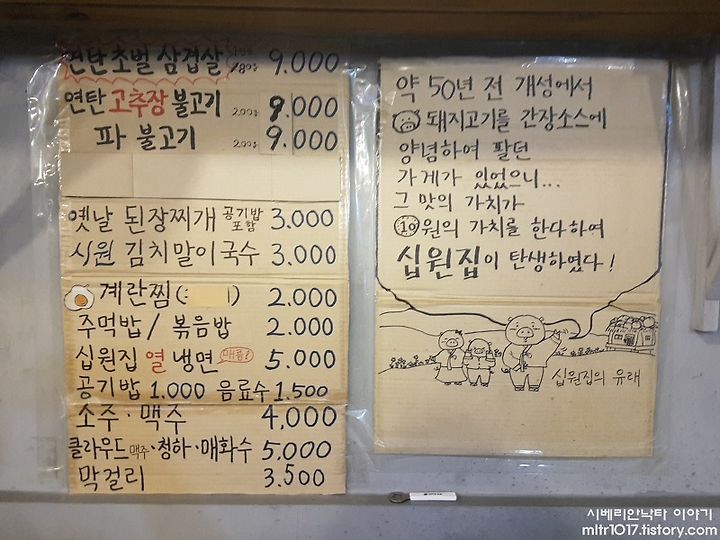 연탄 초벌 삼겹살 180g 9.000
연탄 고추장 불고기 200g 9.000
파 불고기 200g 9.000
옛날 된장찌개 공기밥 포함 3.000
시원 김치말이국수 3.000
계란찜( ) 2.000
주먹밥 / 볶음밥 2.000
십원집 열 냉면 매콤! 5.000
공기밥 1.000 음료수 1.500
소주·맥주 4,000
클라우드 맥주·청하·매화수 5.000
막걸리 3.500
약 50년 전 개성에서
돼지고기를 간장소스에
양념하여 팔던
가게가 있었으니...
그 맛의 가치가
10원의 가치를 한다하여
십원집이 탄생하였다!
십원집의 유래
시베리안낙타 이야기
mltr1017.tistory.com